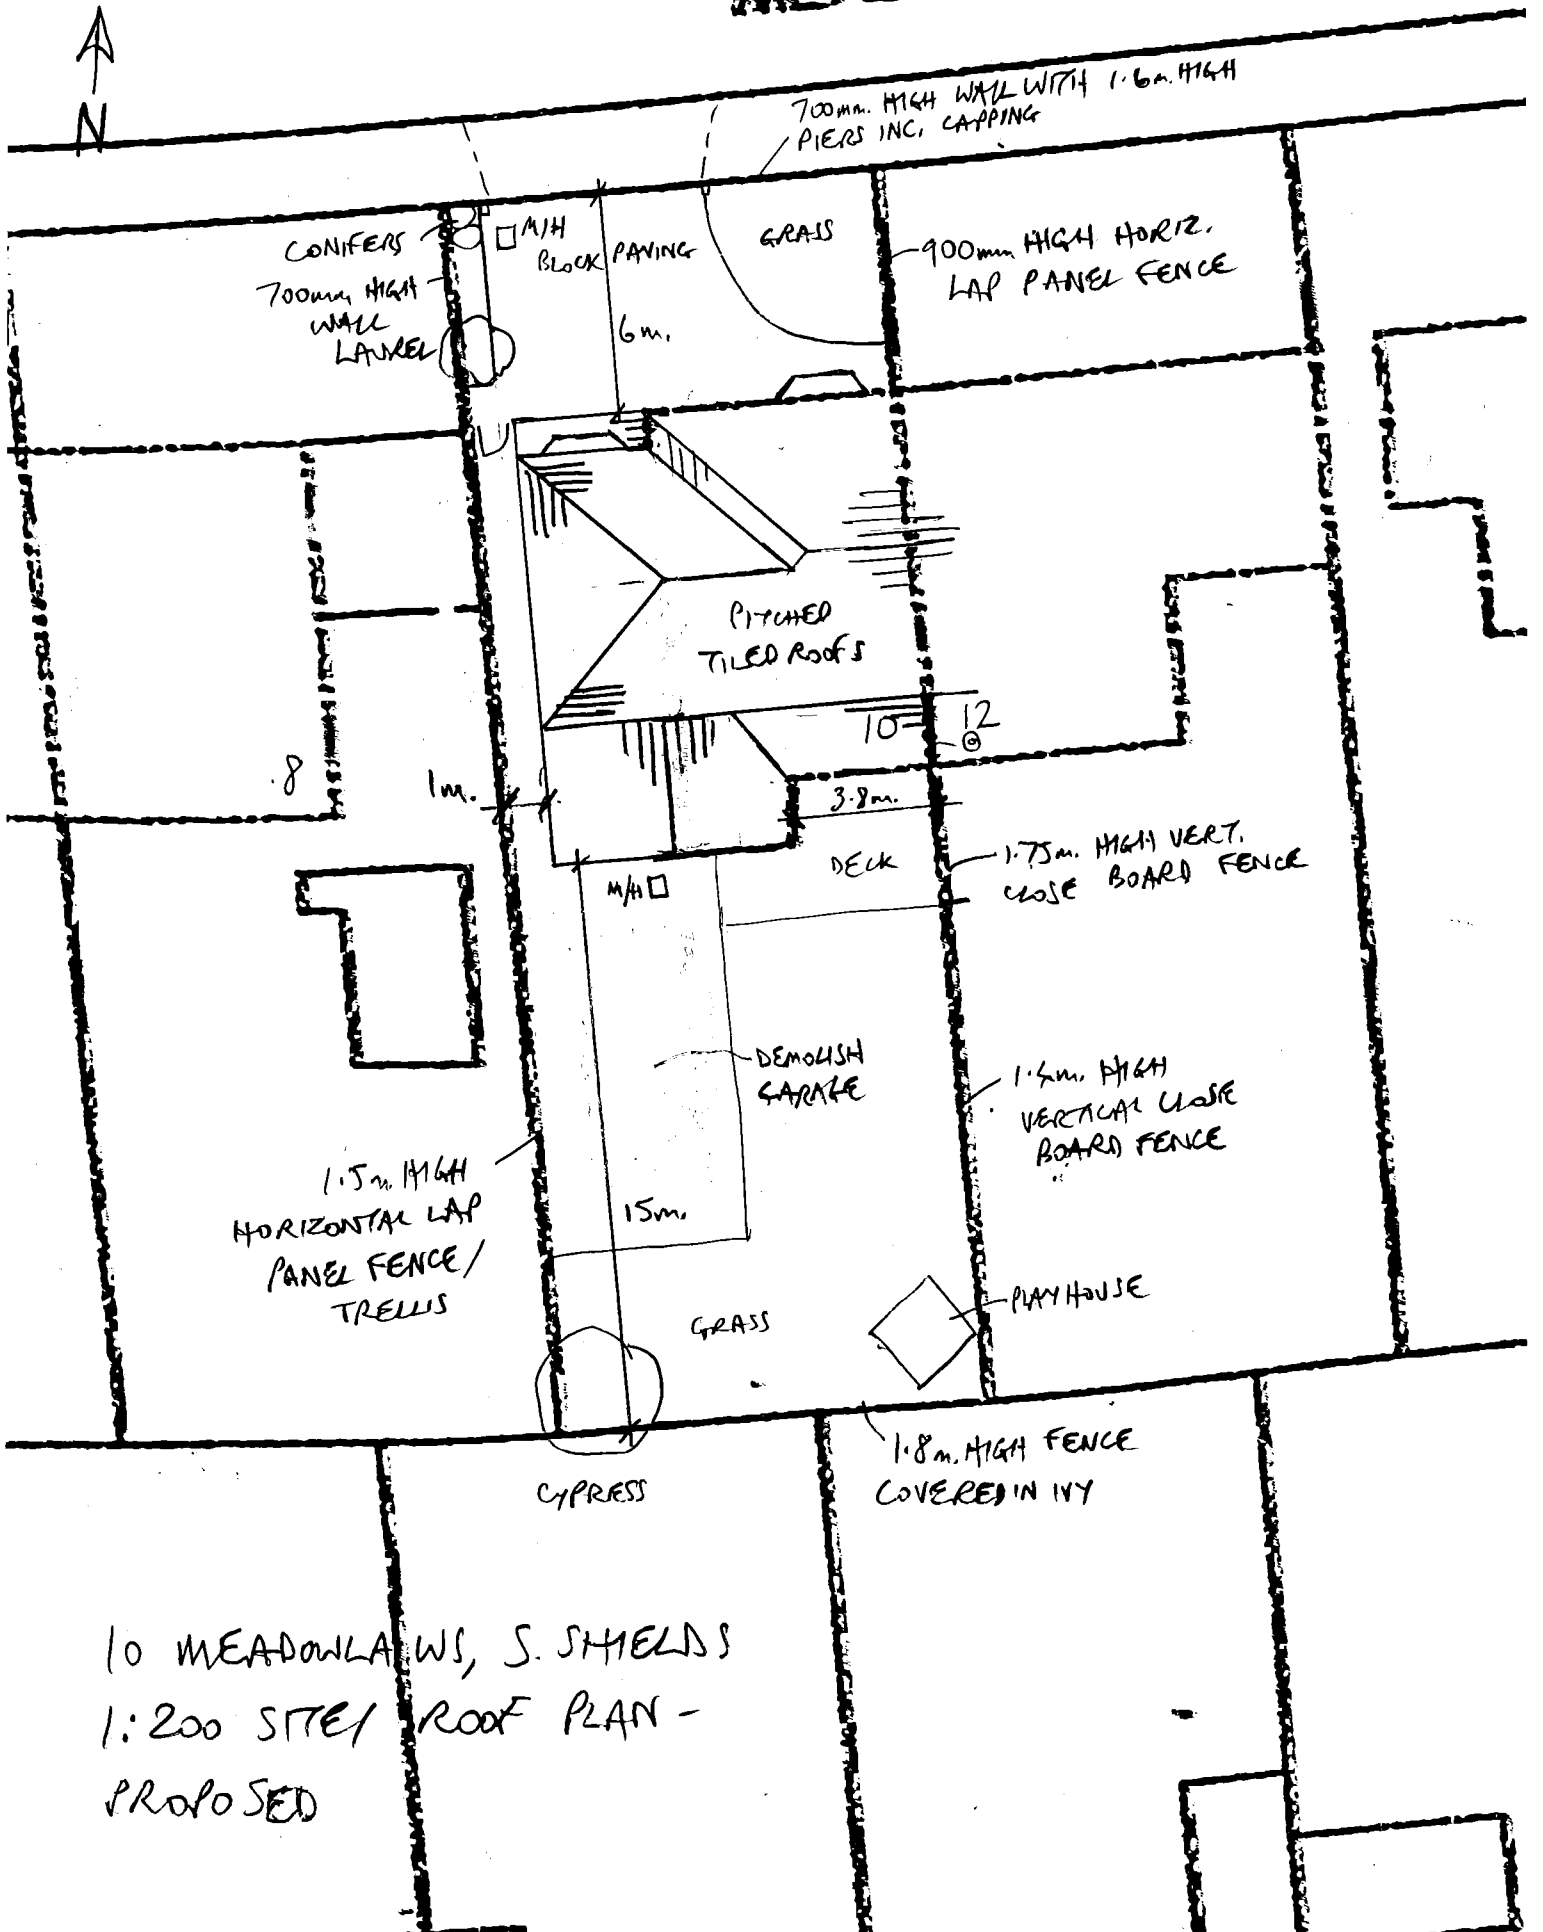 N
700mm. HIGH WALL WITH 1.6m. HIGH
PIERS INC. CAPPING
CONIFERS
M/H
BLOCK PAVING
GRASS
900mm HIGH HORIZ.
LAP PANEL FENCE
700mm HIGH
WALL
LAUREL
6m.
PITCHED
TILED ROOFS
10
12
8
1m.
3.8m.
DECK
1.75m. HIGH VERT.
CLOSE BOARD FENCE
M/H
DEMOLISH
GARAGE
HIGH
VERTICAL CLOSE
BOARD FENCE
1.5m. HIGH
HORIZONTAL LAP
PANEL FENCE/
TRELLIS
15m.
PLAYHOUSE
GRASS
1.8m. HIGH FENCE
COVERED IN IVY
CYPRESS
10 MEADOWLAWS, S. SHIELDS
1:200 SITE/ ROOF PLAN -
PROPOSED